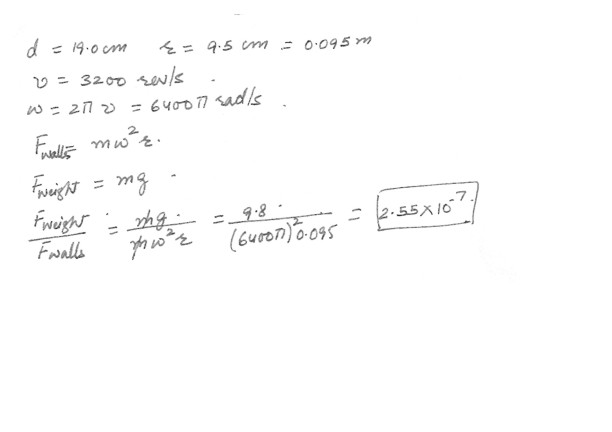 d = 19.0 cm   r = 9.5 cm = 0.095 m
ν = 3200 rev/s.
ω = 2πν = 6400π rad/s.
F_walls = mω²r.
F_weight = mg.
F_weight / F_walls = mg / mω²r = 9.8 / (6400π)² 0.095 = 2.55×10⁻⁷.